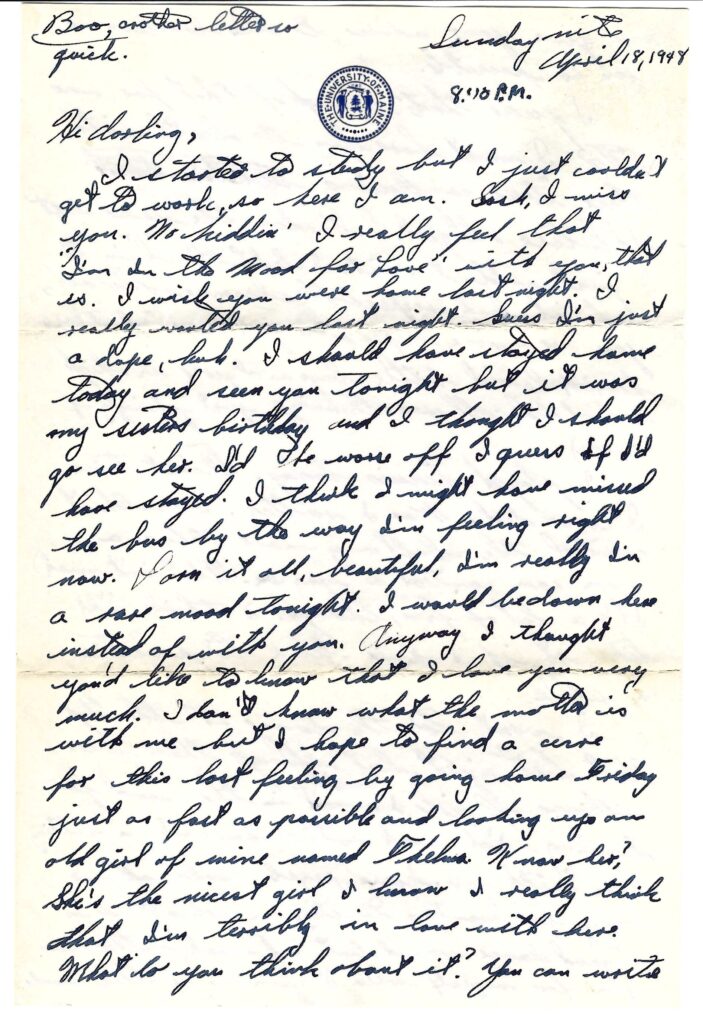 Boo, another letter so
quick.
Sunday nite
April 18, 1948
8:10 P.M.
THE UNIVERSITY OF MAINE
Hi darling,
I started to study but I just couldn't
get to work, so here I am. Gosh, I miss
you. No kiddin' I really feel that
"I'm In the Mood for Love" with you, that
is. I wish you were home last night. I
really wanted you last night. Guess I'm just
a dope, huh. I should have stayed home
today and seen you tonight but it was
my sisters birthday and I thought I should
go see her. I'd be worse off I guess if I'd
have stayed. I think I might have missed
the bus by the way I'm feeling right
now. Darn it all, beautiful, I'm really in
a rare mood tonight. I would be down here
instead of with you. Anyway I thought
you'd like to know that I love you very
much. I don't know what the matter is
with me but I hope to find a cure
for this lost feeling by going home Friday
just as fast as possible and looking up an
old girl of mine named Thelma. Know her?
She's the nicest girl I know I really think
that I'm terribly in love with here.
What do you think about it? You can write